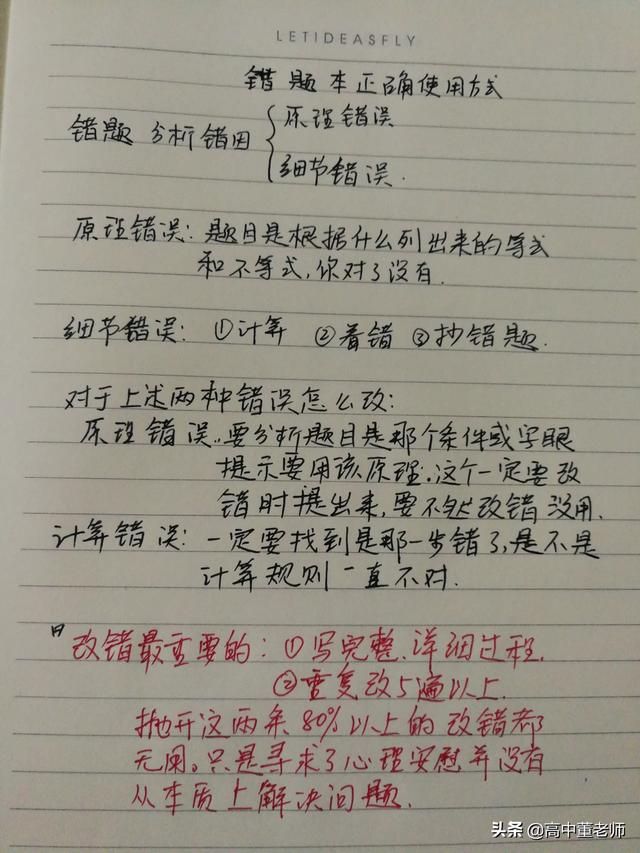 LETIDEASFLY
错题本正确使用方式
错题 分析错因 { 原理错误
细节错误.
原理错误: 题目是根据什么列出来的等式
和不等式, 你对了没有.
细节错误: ①计算 ②看错 ③抄错题.
对于上述两种错误怎么改:
原理错误..要分析题目是那个条件或字眼
提示要用该原理.这个一定要改
错时提出来,要不然改错没用.
计算错误: 一定要找到是那一步错了,是不是
计算规则一直不对.
改错最重要的: ①写完整、详细过程.
②重复改5遍以上.
抛开这两条80%以上的改错都
无用。只是寻求了心理安慰并没有
从本质上解决问题.
头条 @高中董老师